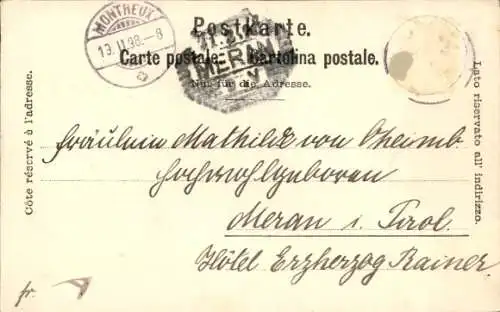 Postkarte.
Carte postale. Cartolina postale.
Nur für die Adresse.
MONTREUX
19.II.98.-8
MERAN
Côte réservé à l'adresse.
Lato riservato all' indirizzo.
Fräulein Mathilde von Oheimb
Hochwohlgeboren
Meran i. Tirol.
Hôtel Erzherzog Rainer
fr.